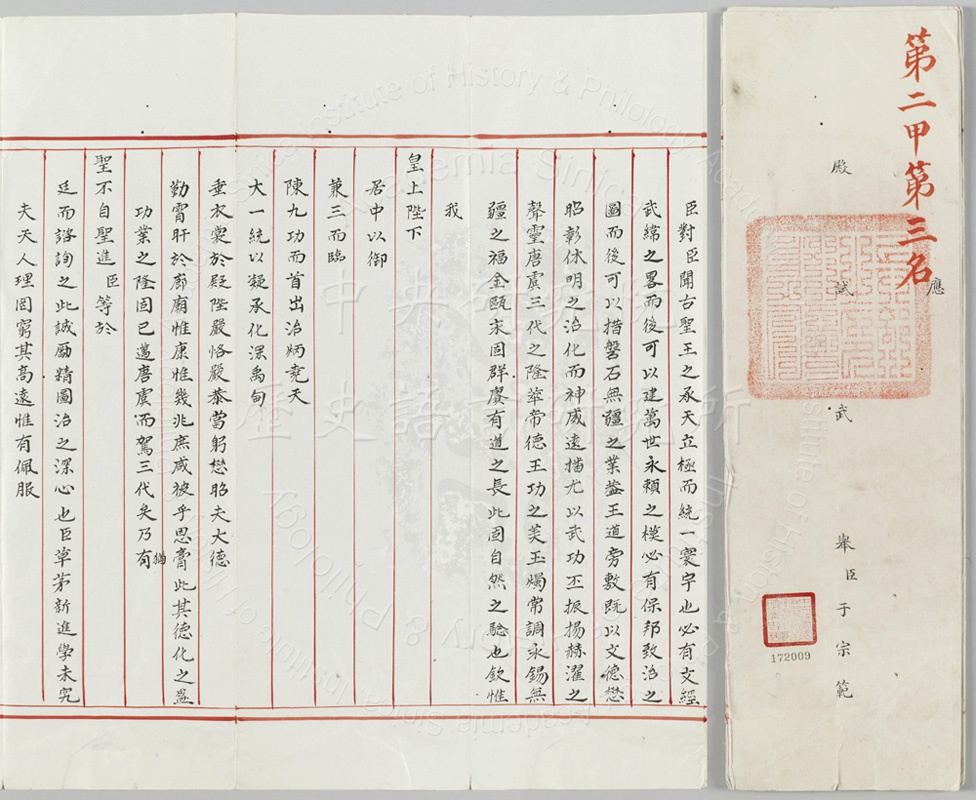 第二甲第三名
應
殿試武舉臣于宗範
172009
臣對臣聞古聖王之承天立極而統一寰宇也必有文經
武緯之畧而後可以建萬世永賴之模必有保邦致治之
圖而後可以措磐石無疆之業蓋王道旁敷既以文德懋
昭彰休明之治化而神威遠播尤以武功丕振揚赫濯之
聲靈唐虞三代之隆華帝德王功之美玉燭常調永錫無
疆之福金甌宋固群賡有道之長此固自然之驗也欽惟
我
皇上陛下
居中以御
兼三而臨
陳九功而首出治炳堯天
大一統以凝承化漯禹甸
垂衣裳於殿陛嚴恪嚴恭當躬懋昭夫大德
勤宵旰於廊廟惟康惟幾兆庶咸被乎思膏此其德化之盛
功業之隆固已邁唐虞而駕三代矣乃有
猶
聖不自聖進臣等於
廷而諮詢之此誠勵精圖治之深心也臣草茅新進學未究
夫天人理罔窮其高遠惟有佩服
中央研究院
歷史語言研究所
Institute of History & Philology, Academia Sinica